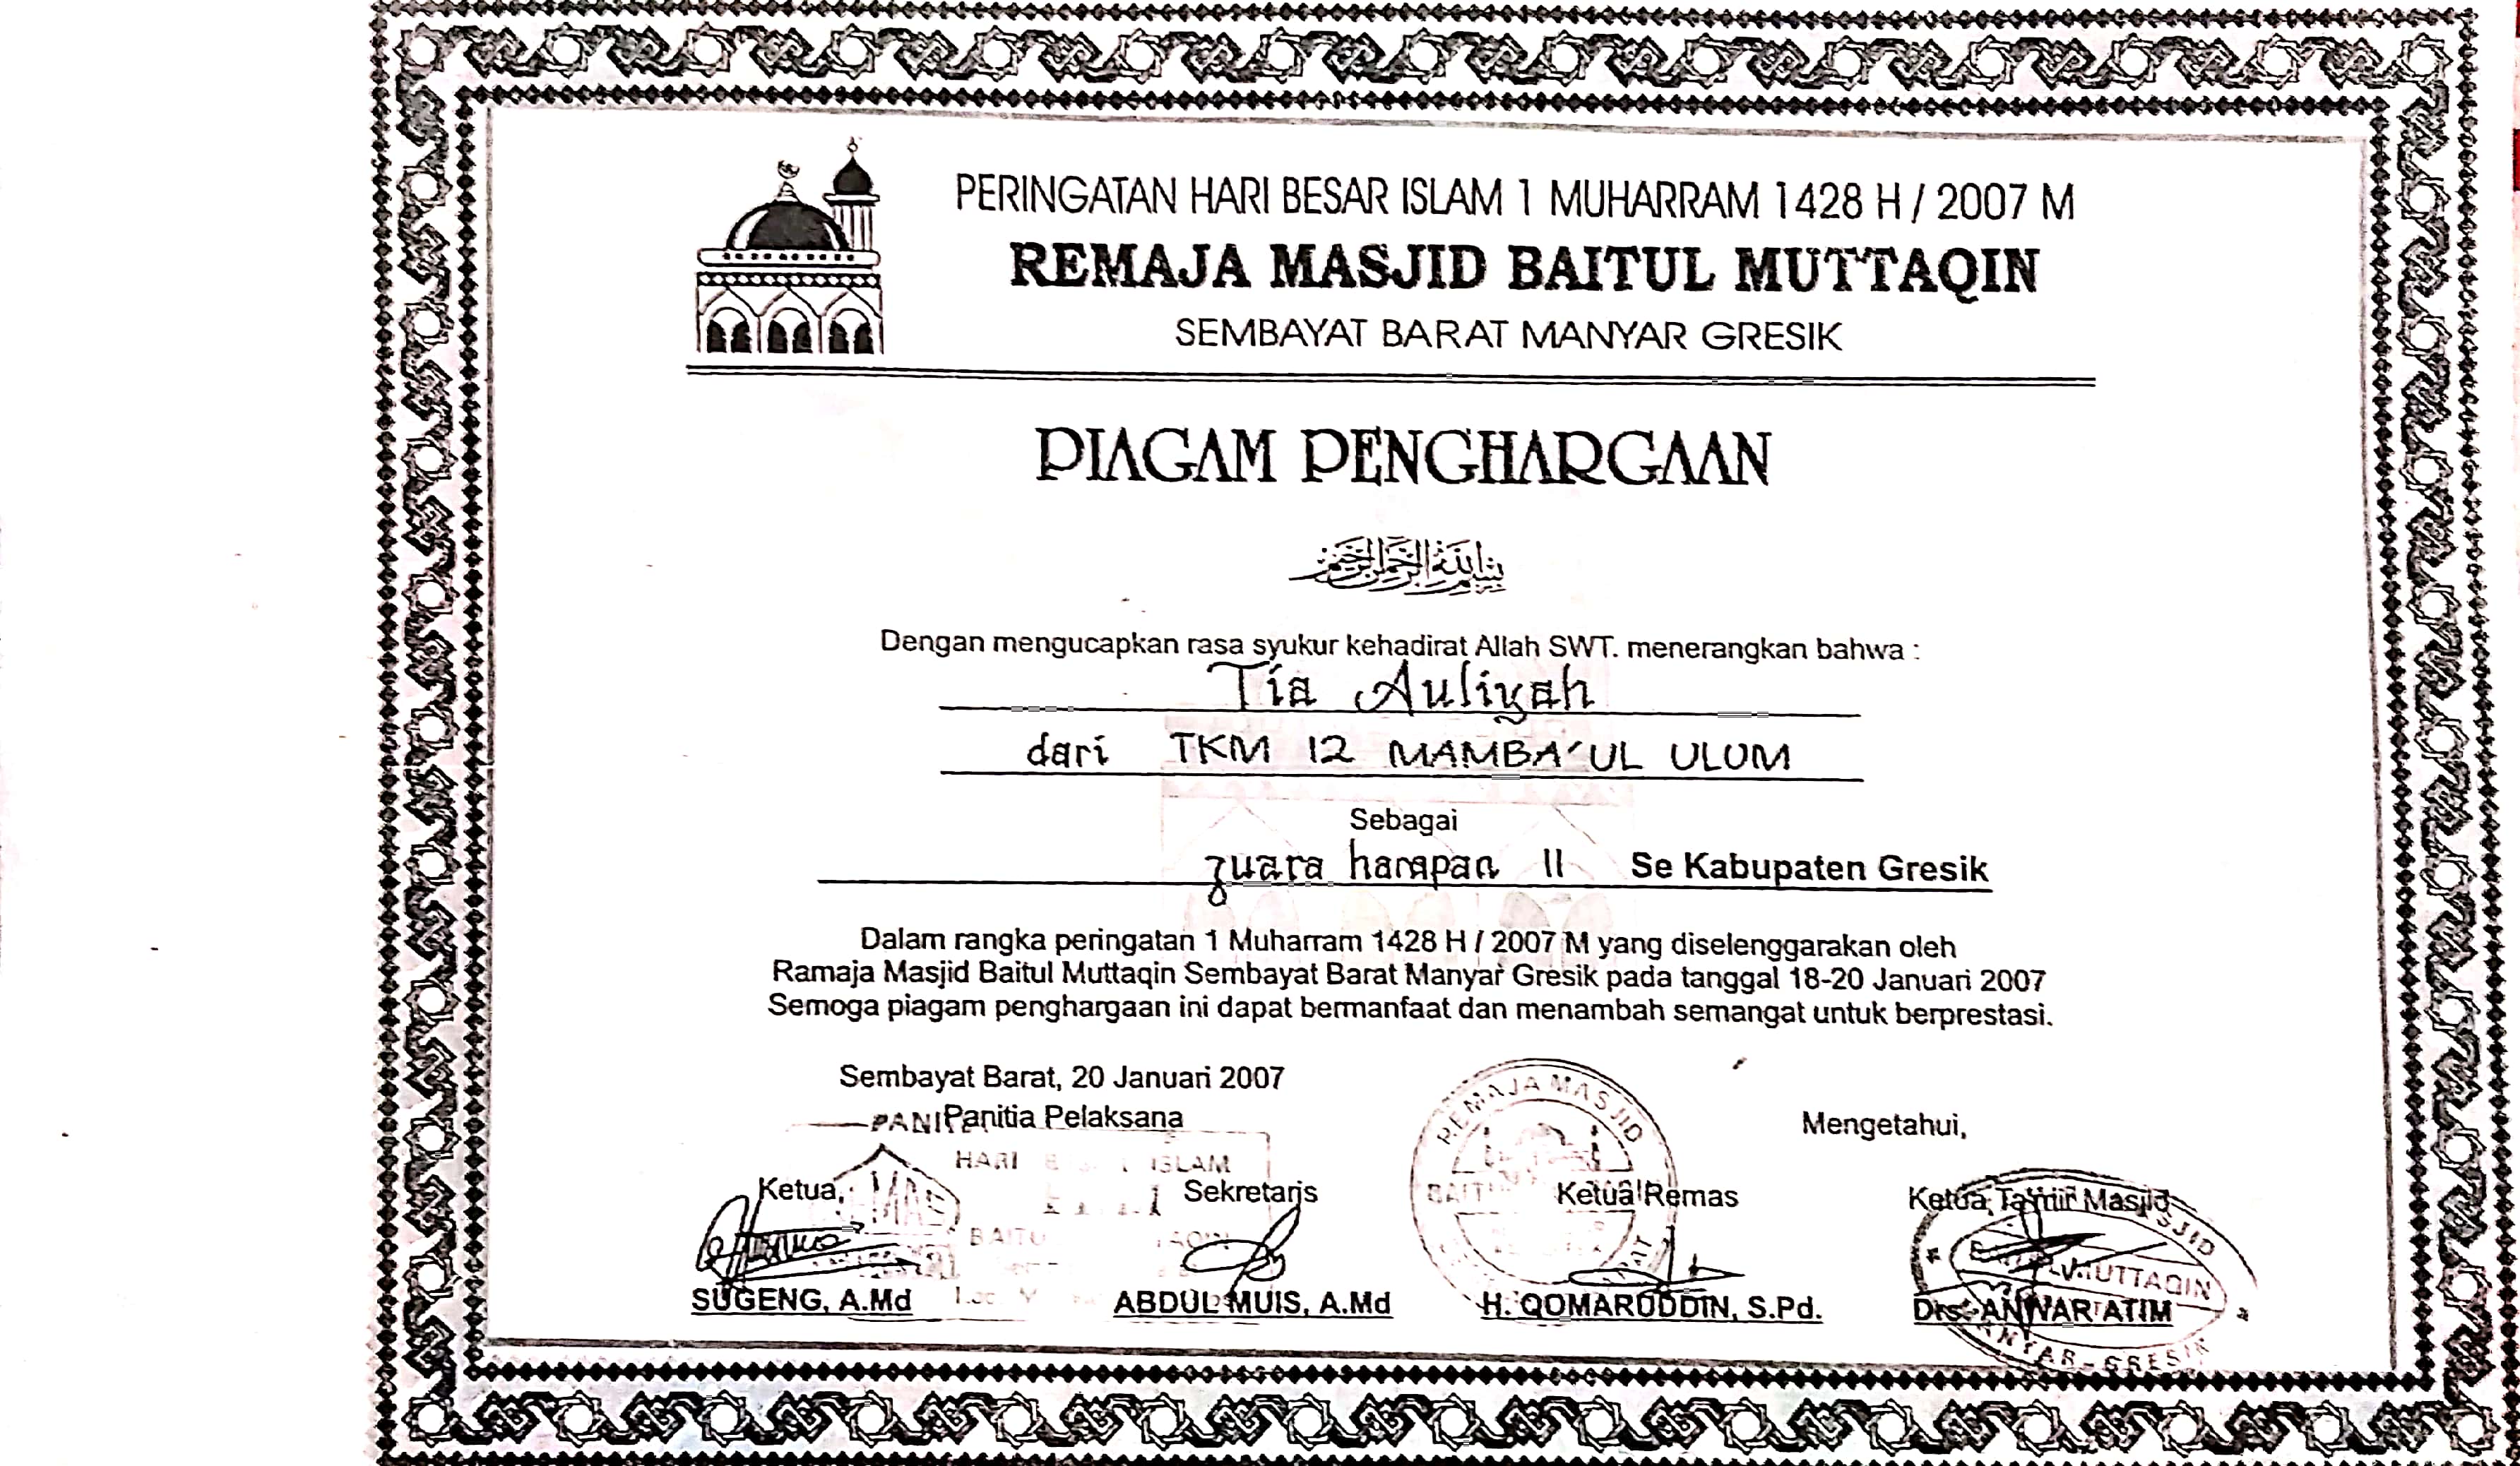 PERINGATAN HARI BESAR ISLAM 1 MUHARRAM 1428 H / 2007 M
REMAJA MASJID BAITUL MUTTAQIN
SEMBAYAT BARAT MANYAR GRESIK
PIAGAM PENGHARGAAN
بسم الله الرحمن الرحيم
Dengan mengucapkan rasa syukur kehadirat Allah SWT. menerangkan bahwa :
Tia Auliyah
dari TKM 12 MAMBA'UL ULUM
Sebagai
juara harapan II Se Kabupaten Gresik
Dalam rangka peringatan 1 Muharram 1428 H / 2007 M yang diselenggarakan oleh
Ramaja Masjid Baitul Muttaqin Sembayat Barat Manyar Gresik pada tanggal 18-20 Januari 2007
Semoga piagam penghargaan ini dapat bermanfaat dan menambah semangat untuk berprestasi.
Sembayat Barat, 20 Januari 2007
Panitia Pelaksana
Mengetahui,
HARI ISLAM
REMAJA MASJID
Ketua, Sekretaris Ketua Remas Ketua Ta'mir Masjid
MUTTAQIN
SUGENG, A.Md ABDUL MUIS, A.Md H. QOMARUDDIN, S.Pd. Drs. ANWAR ATIM
MANYAR - GRESIK